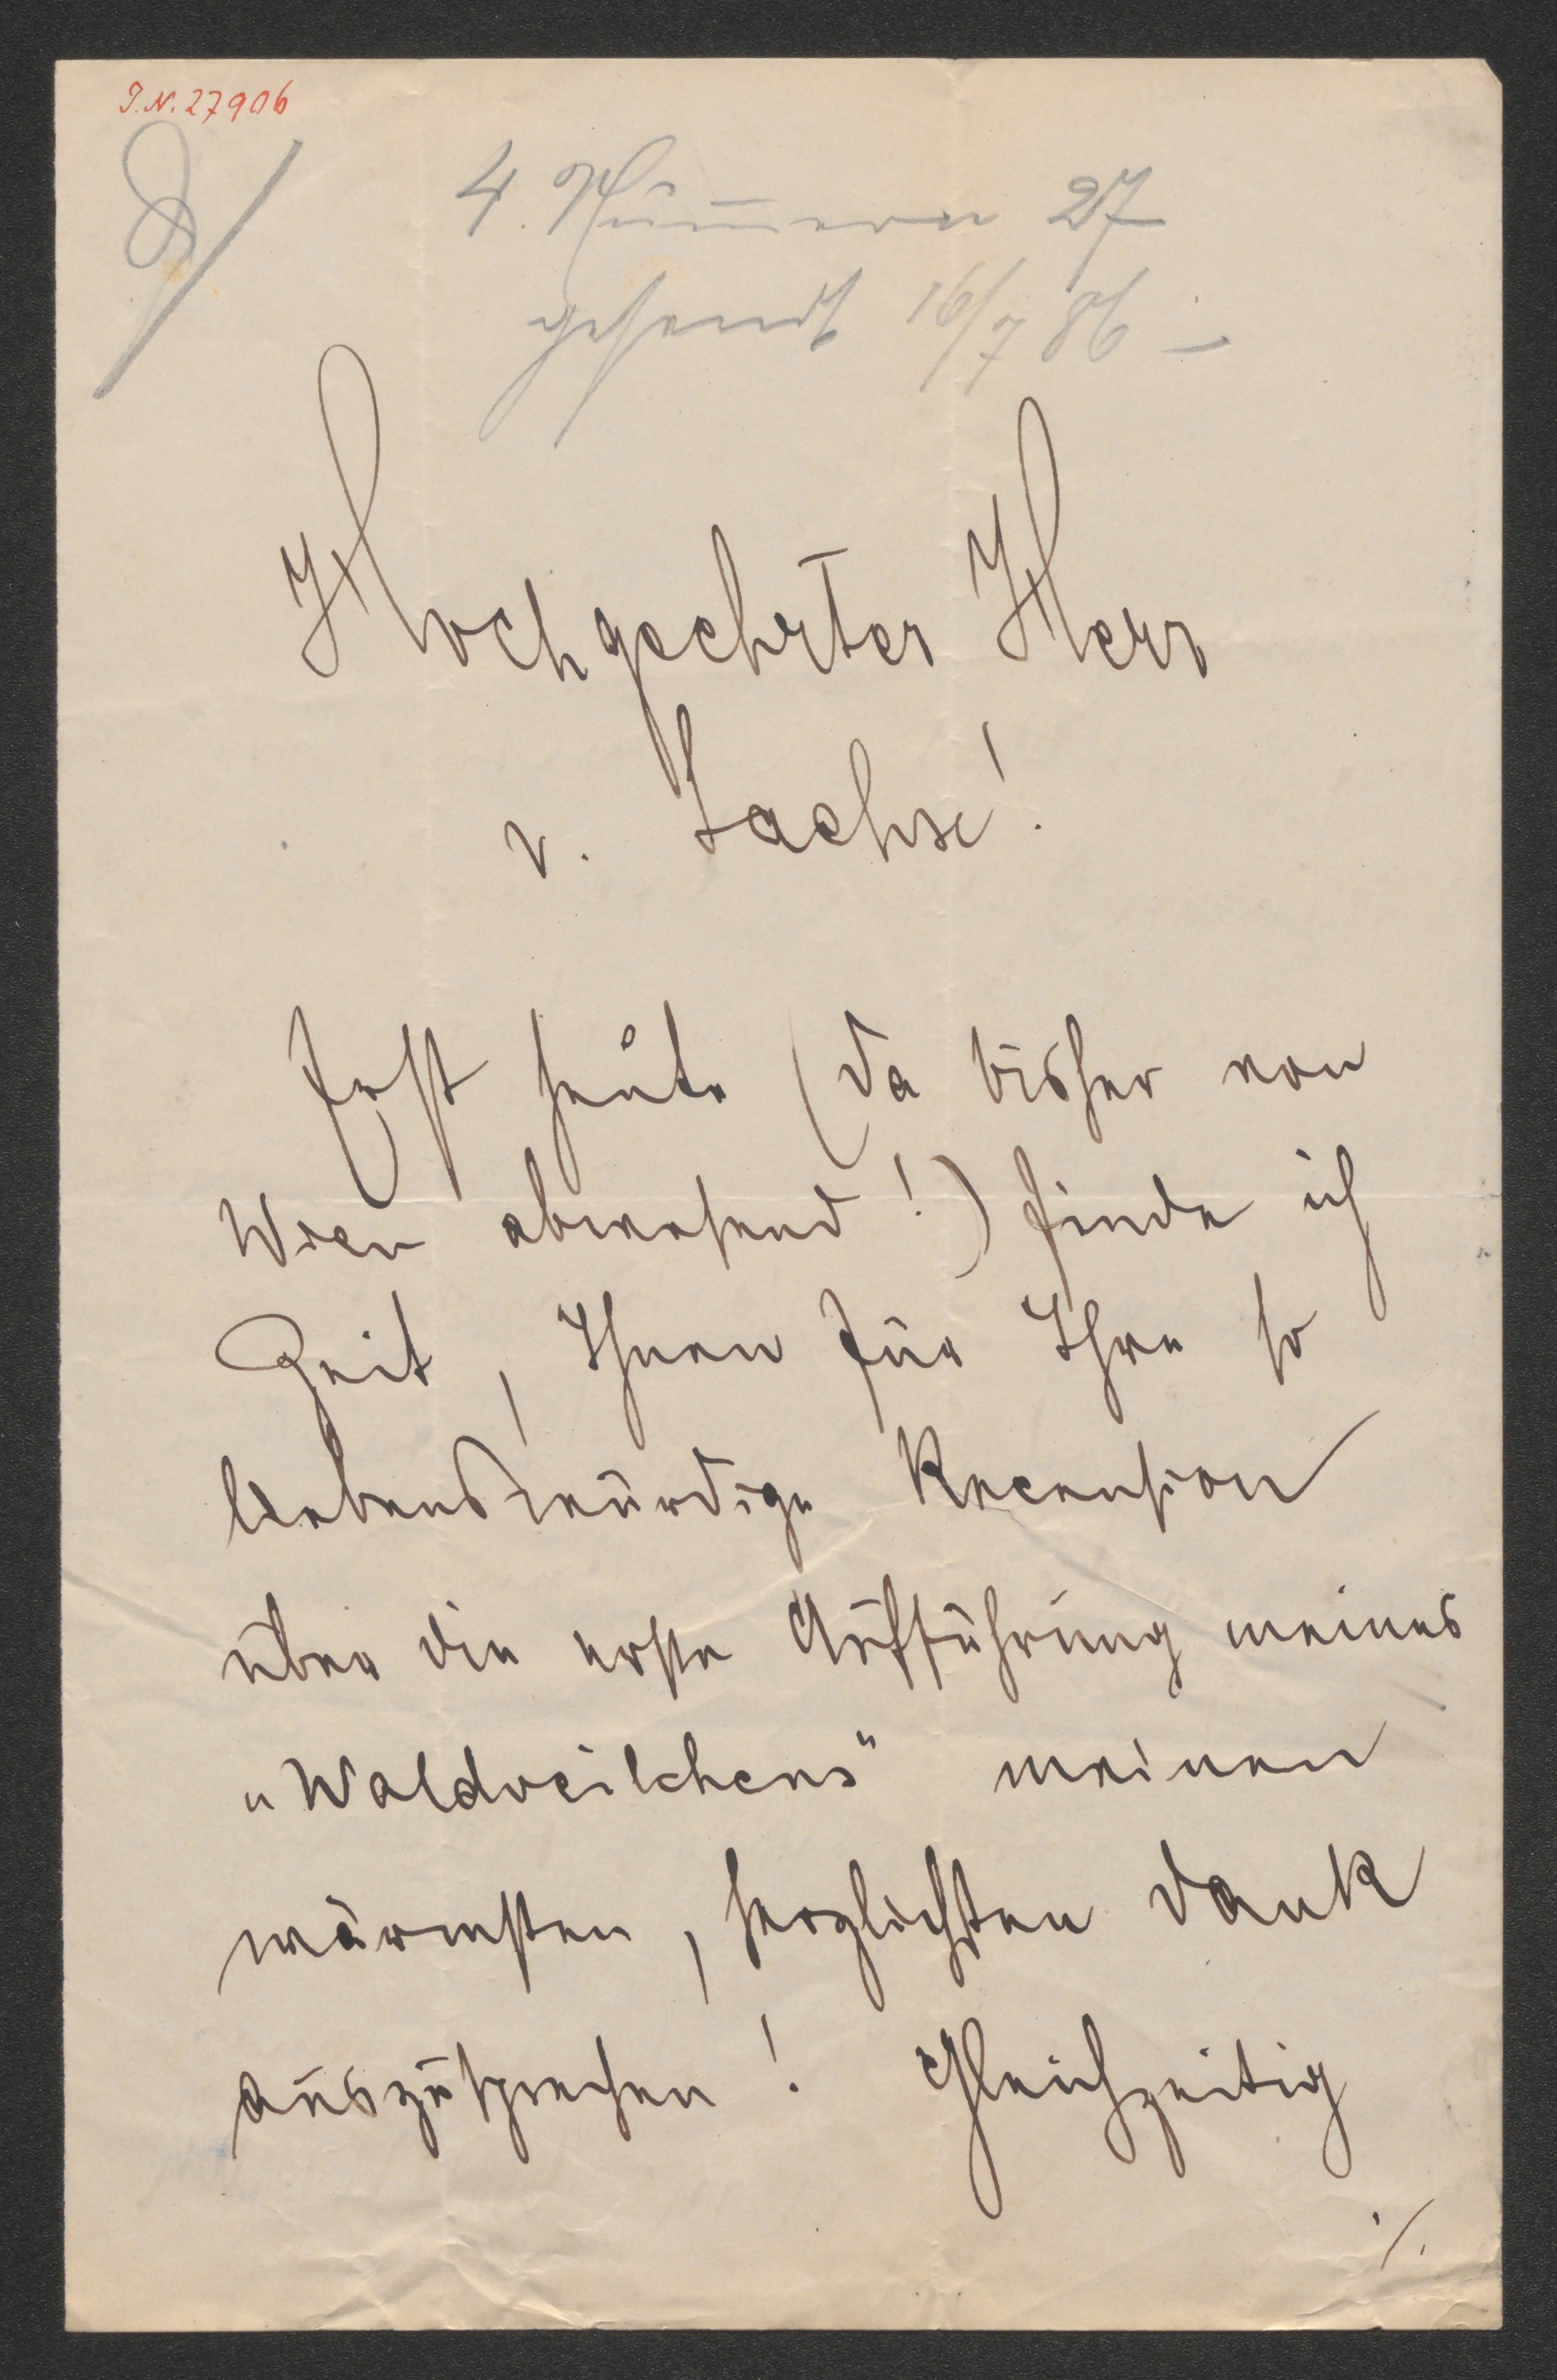 I.N. 27906
4. Nummern 27
gesendt 16/7 86 –
Hochgeehrter Herr
v. Sachse!
Erst heute (da bisher von
Wien abwesend!) finde ich
Zeit, Ihnen für Ihre so
liebenswürdige Recension
über die erste Aufführung meines
„Waldveilchens" meinen
wärmsten, herzlichsten Dank
auszusprechen! Gleichzeitig
./.